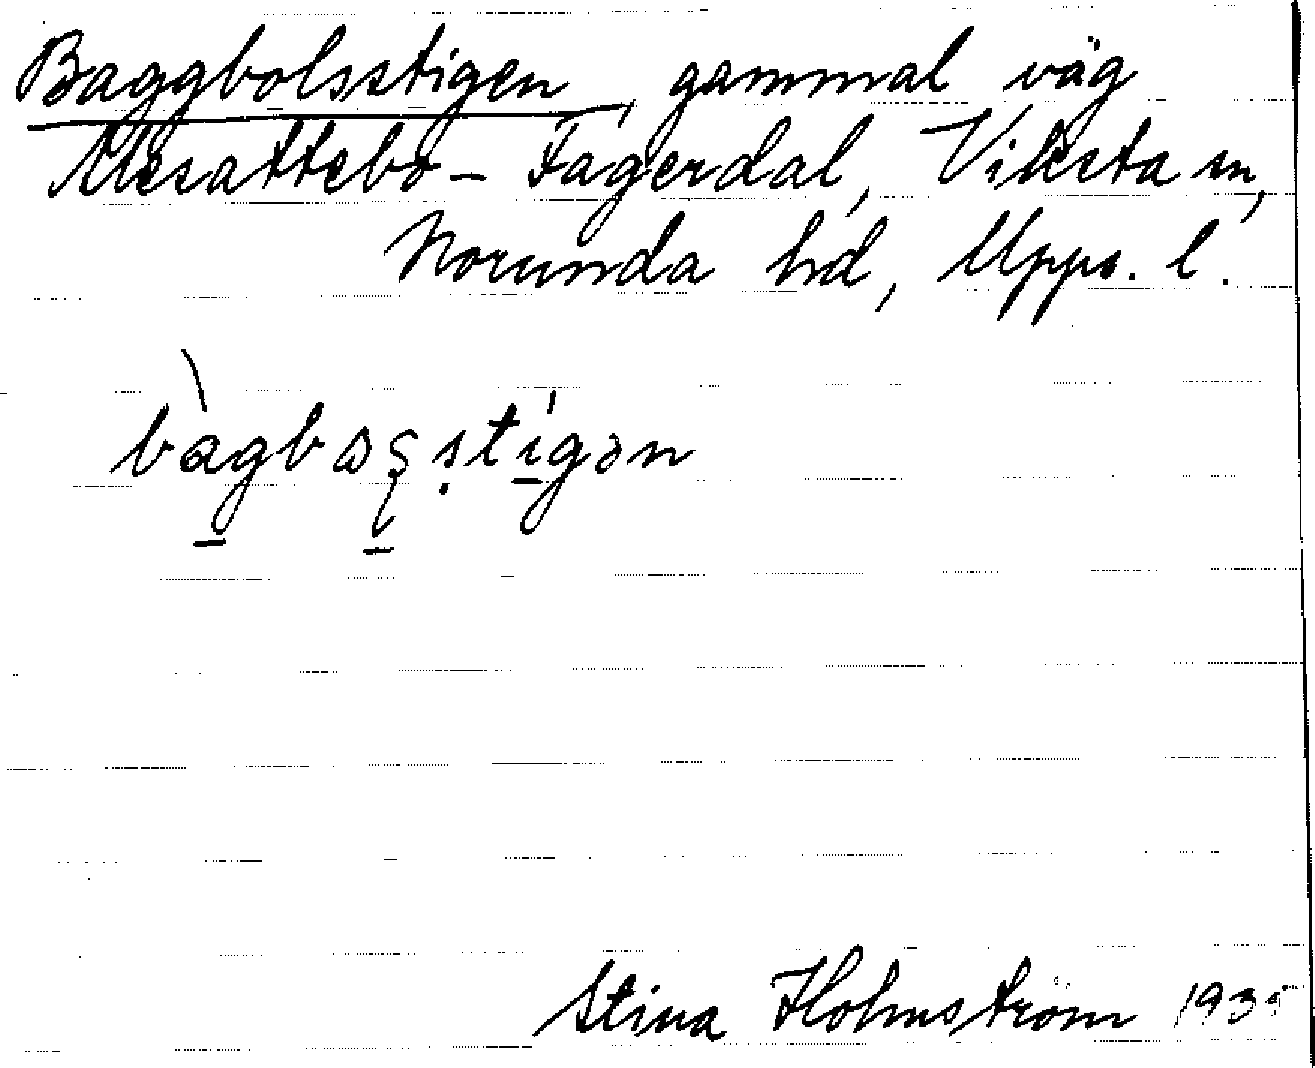 Baggbolsstigen, gammal väg
Mesattebo – Fagerdal, Viksta sn,
Norunda hd, Upps. l.
Stina Holmström 1935